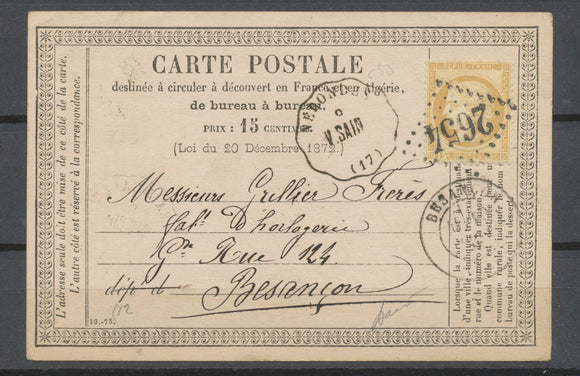 CARTE POSTALE
destinée à circuler à découvert en France et en Algérie,
de bureau à bureau
PRIX : 15 CENTIMES
(Loi du 20 Décembre 1872.)
V.SAID
(17)
REPUB. FRANC.
2654
BESAN
Messieurs Grillier Frères
fab.t d'horlogerie
G.de Rue 124
dép.t d
Besançon
L'adresse seule doit être mise de ce côté de la carte.
L'autre côté est réservé à la correspondance.
Lorsque la carte est
d'une ville, indiquez très-exactement
rue et le numéro de la maison.
Quand elle est destinée pour une
commune rurale, indiquer le nom du
bureau de poste qui la dessert.
10.-75.